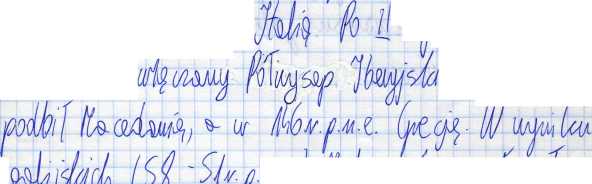 Italię. Po II
włączony Półwysep Iberyjski
podbił Macedonię, a w 146r.p.n.e. Grecję. W wyniku
galijskich (58-51r.p.